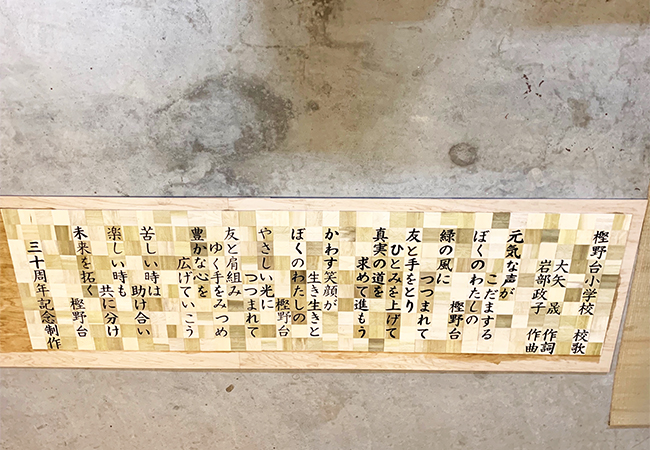 樫野台小学校 校歌
大矢 晟 作詞
岩部政子 作曲
元気な声が
こだまする
ぼくのわたしの
樫野台
緑の風に
つつまれて
友と手をとり
ひとみを上げて
真実の道を
求めて進もう
かわす笑顔が
生き生きと
ぼくのわたしの
樫野台
やさしい光に
つつまれて
友と肩組み
ゆく手をみつめ
豊かな心を
広げていこう
苦しい時は
助け合い
楽しい時も
共に分け
未来を拓く
樫野台
三十周年記念制作